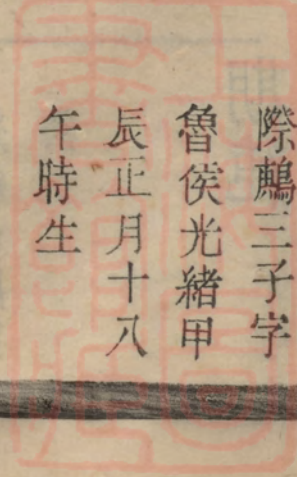 際鷓三子字
魯侯光緒甲
辰正月十八
午時生